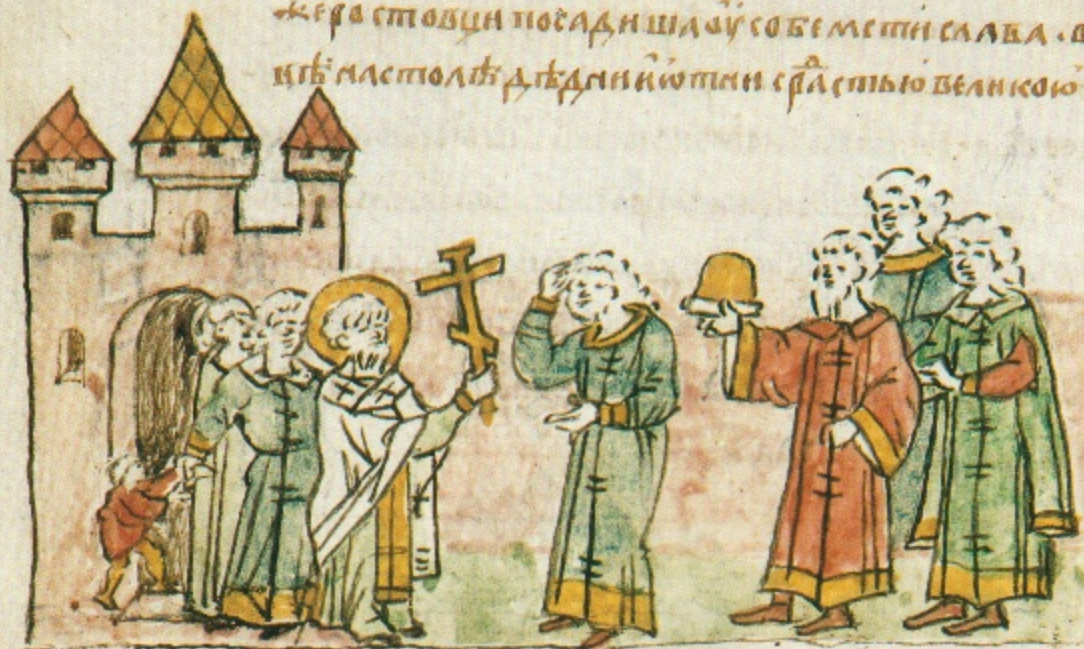 жеростовци посадиша оу собе мстислава · в
настолѣ дѣднии ѿтни сраⷣстью великою